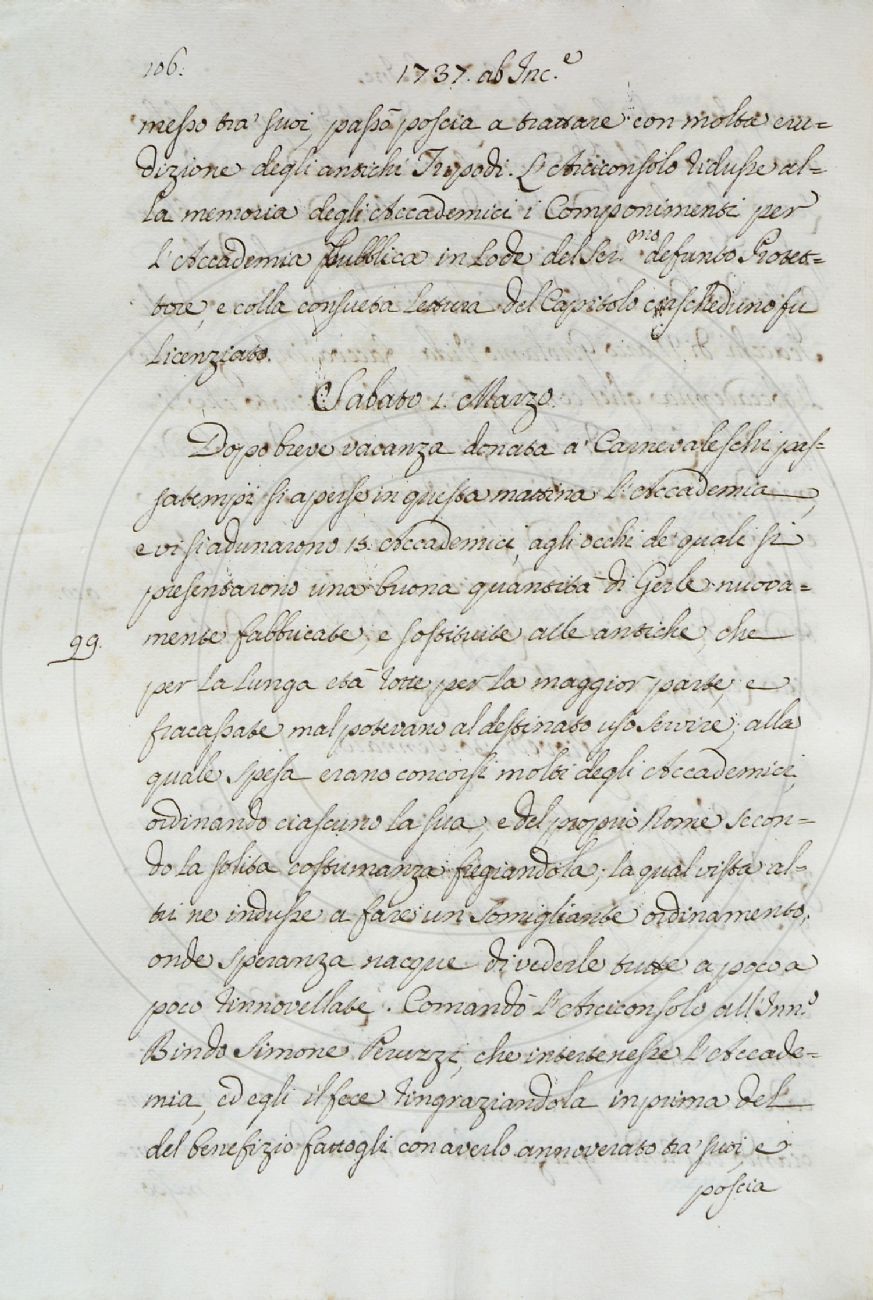 106.
1737. ab Inc.e
messo tra' suoi, passò poscia a trattare con molta eru=
dizione degli antichi Tripodi. L'Arciconsolo ridusse al=
la memoria degli Accademici i Componimenti per
l'Accademia Pubblica in Lode del Ser.mo defunto Protet=
tore, e colla consueta Lettura del Capitolo ciascheduno fu
Licenziato.
Sabato 1. Marzo.
Dopo breve vacanza donata a' Carnevaleschi pas=
satempi si aperse in questa mattina l'Accademia,
e vi si adunarono 15. Accademici, agli occhi de' quali si
presentarono una buona quantità di Gerle nuova=
99.
mente fabbricate, e sostituite alle antiche, che
per la lunga età rotte per la maggior parte, e
fracassate mal potevano al destinato uso servire; alla
quale spesa erano concorsi molti degli Accademici,
ordinando ciascuno la sua, e del proprio Nome secon=
do la solita costumanza fregiandola; la qual vista al=
tri ne indusse a fare un somigliante ordinamento,
onde speranza nacque di vederle tutte a poco a
poco rinnovellate. Comandò l'Arciconsolo all'Inn.o
Bindo Simone Peruzzi, che intertenesse l'Accade=
mia, ed egli il fece ringraziandola in prima del
del benefizio fattogli con averlo annoverato tra' suoi, e
poscia